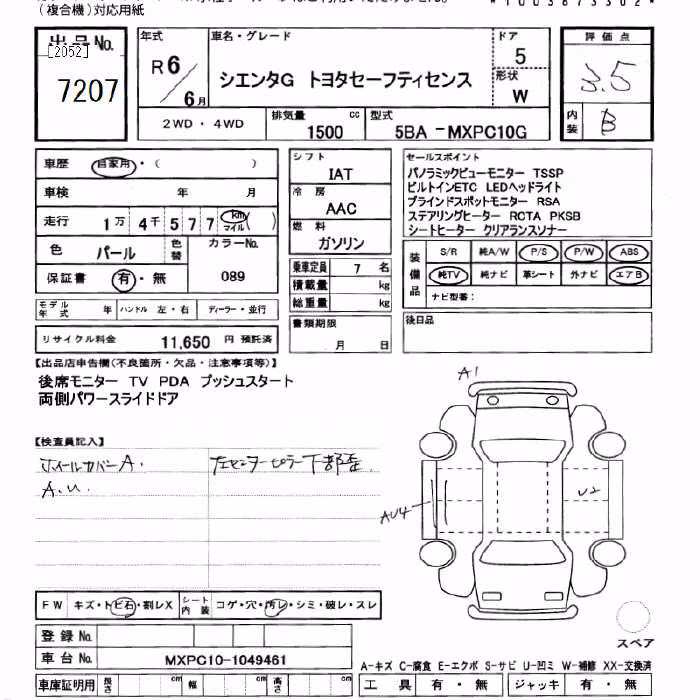 (複合機)対応用紙
*1003673302*
出品No.
[2052]
7207
年式
R6/6月
車名・グレード
シエンタG トヨタセーフティセンス
ドア
5
形状
W
2WD・4WD
排気量
1500 cc
型式
5BA-MXPC10G
評価点
3.5
内装
B
車歴 自家用・( )
車検 年 月
走行 1万4千577 km マイル ( )
色 パール 色替 カラーNo.
保証書 有・無 089
モデル年式 年 ハンドル 左・右 ディーラー・並行
リサイクル料金 11,650 円 預託済
シフト
IAT
冷房
AAC
燃料
ガソリン
乗車定員 7 名
積載量 kg
総重量 kg
書類期限
月 日
セールスポイント
パノラミックビューモニター TSSP
ビルトインETC LEDヘッドライト
ブラインドスポットモニター RSA
ステアリングヒーター RCTA PKSB
シートヒーター クリアランスソナー
装備品
S/R 純A/W P/S P/W ABS
純TV 純ナビ 革シート 外ナビ エアB
ナビ型番:
後日品
【出品店申告欄(不良箇所・欠品・注意事項等)】
後席モニター TV PDA プッシュスタート
両側パワースライドドア
【検査員記入】
ホイールカバーA. 左センターピラー下部歪
A.U.
A1
AU4
U2
FW キズ・トビ石・割レX シート内装 コゲ・穴・汚レ・シミ・破レ・スレ
登録No.
車台No. MXPC10-1049461
車庫証明用 長さ cm 幅 cm 高さ cm
スペア
A-キズ C-腐食 E-エクボ S-サビ U-凹ミ W-補修 XX-交換済
工具 有・無 ジャッキ 有・無